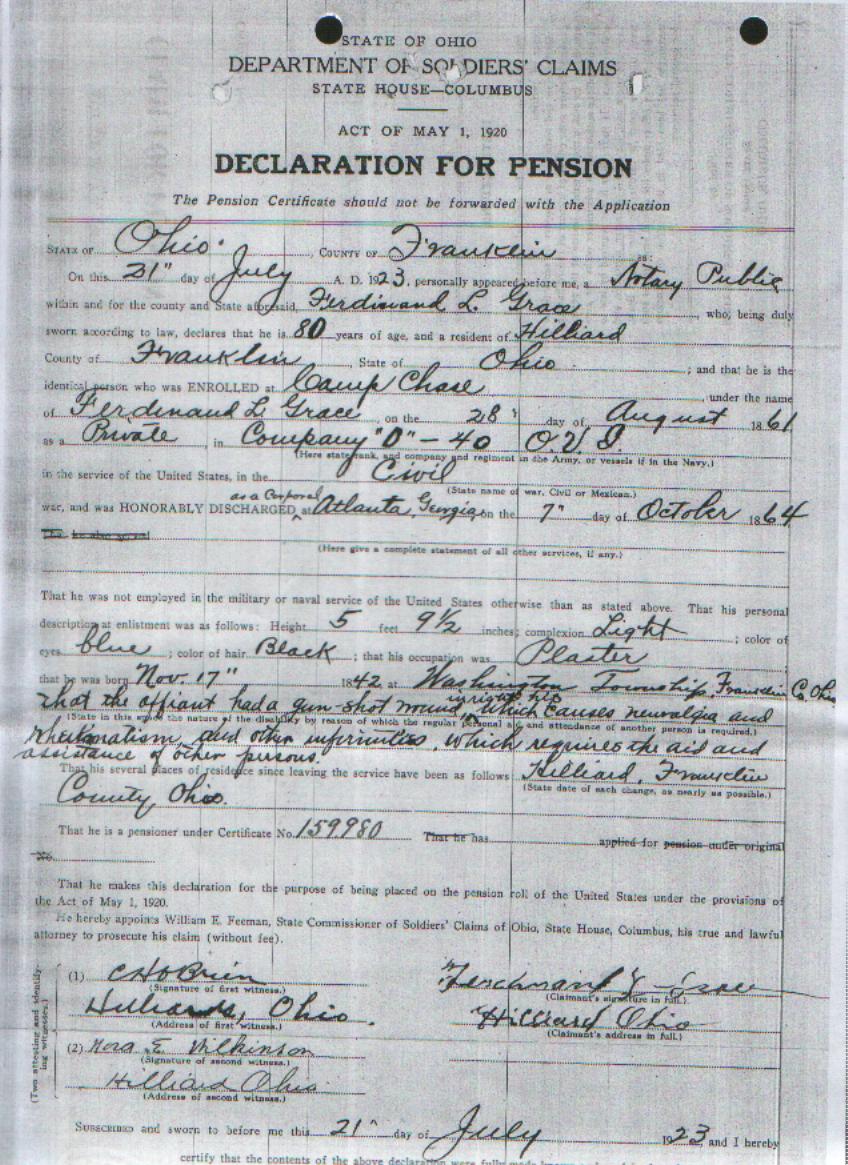 STATE OF OHIO
DEPARTMENT OF SOLDIERS' CLAIMS
STATE HOUSE—COLUMBUS
ACT OF MAY 1, 1920
DECLARATION FOR PENSION
The Pension Certificate should not be forwarded with the Application
STATE OF Ohio, COUNTY OF Franklin ss:
On this 21" day of July A. D. 1923, personally appeared before me, a Notary Public
within and for the county and State aforesaid, Ferdinand L. Grace, who, being duly
sworn according to law, declares that he is 80 years of age, and a resident of Hilliard
County of Franklin, State of Ohio; and that he is the
identical person who was ENROLLED at Camp Chase, under the name
of Ferdinand L. Grace, on the 28" day of August 1861
as a Private, in Company "D" - 40 O.V.I.
(Here state rank, and company and regiment in the Army, or vessels if in the Navy.)
in the service of the United States, in the Civil
(State name of war, Civil or Mexican.)
as a Corporal
war, and was HONORABLY DISCHARGED at Atlanta, Georgia, on the 7" day of October 1864
(Here give a complete statement of all other services, if any.)
That he was not employed in the military or naval service of the United States otherwise than as stated above. That his personal
description at enlistment was as follows: Height 5 feet 9½ inches; complexion Light; color of
eyes blue; color of hair Black; that his occupation was Plaster
that he was born Nov. 17" 1842 at Washington Township, Franklin Co. Ohio
in right hip
that the affiant had a gun-shot wound, which causes neuralgia and
(State in this space the nature of the disability by reason of which the regular personal aid and attendance of another person is required.)
rheumatism, and other infirmities, which requires the aid and
assistance of other persons.
That his several places of residence since leaving the service have been as follows Hilliard, Franklin
(State date of each change, as nearly as possible.)
County, Ohio.
That he is a pensioner under Certificate No. 159980 That he has applied for pension under original
No.
That he makes this declaration for the purpose of being placed on the pension roll of the United States under the provisions of
the Act of May 1, 1920.
He hereby appoints William E. Feeman, State Commissioner of Soldiers' Claims of Ohio, State House, Columbus, his true and lawful
attorney to prosecute his claim (without fee).
(Two attesting and identifying witnesses.)
(1) C H O'Brien Ferdinand L Grace
(Signature of first witness.) (Claimant's signature in full.)
Hilliards, Ohio. Hilliard Ohio
(Address of first witness.) (Claimant's address in full.)
(2) Nora E. Wilkinson
(Signature of second witness.)
Hilliard Ohio
(Address of second witness.)
SUBSCRIBED and sworn to before me this 21" day of July 1923, and I hereby
certify that the contents of the above declaration were fully made known